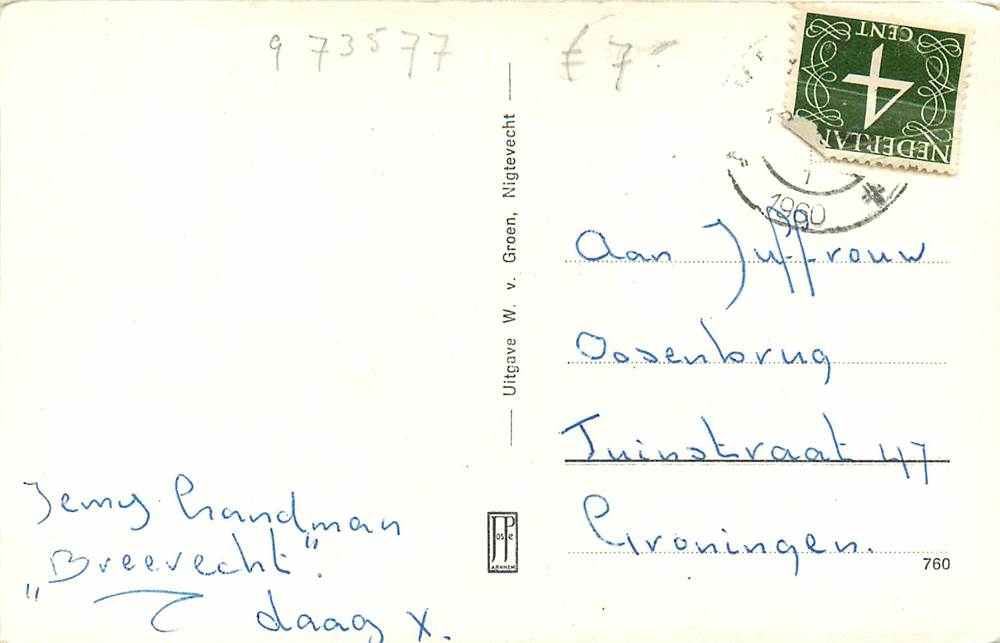 9 73577
£ 7-
CENT
4
NEDERLAN
1
1960
Uitgave W. v. Groen, Nigtevecht
Aan Juffrouw
Oosenbrug
Tuinstraat 47
Groningen.
Jemy Grandman
„Breevecht".
daag X.
JosPe
ARNHEM
760